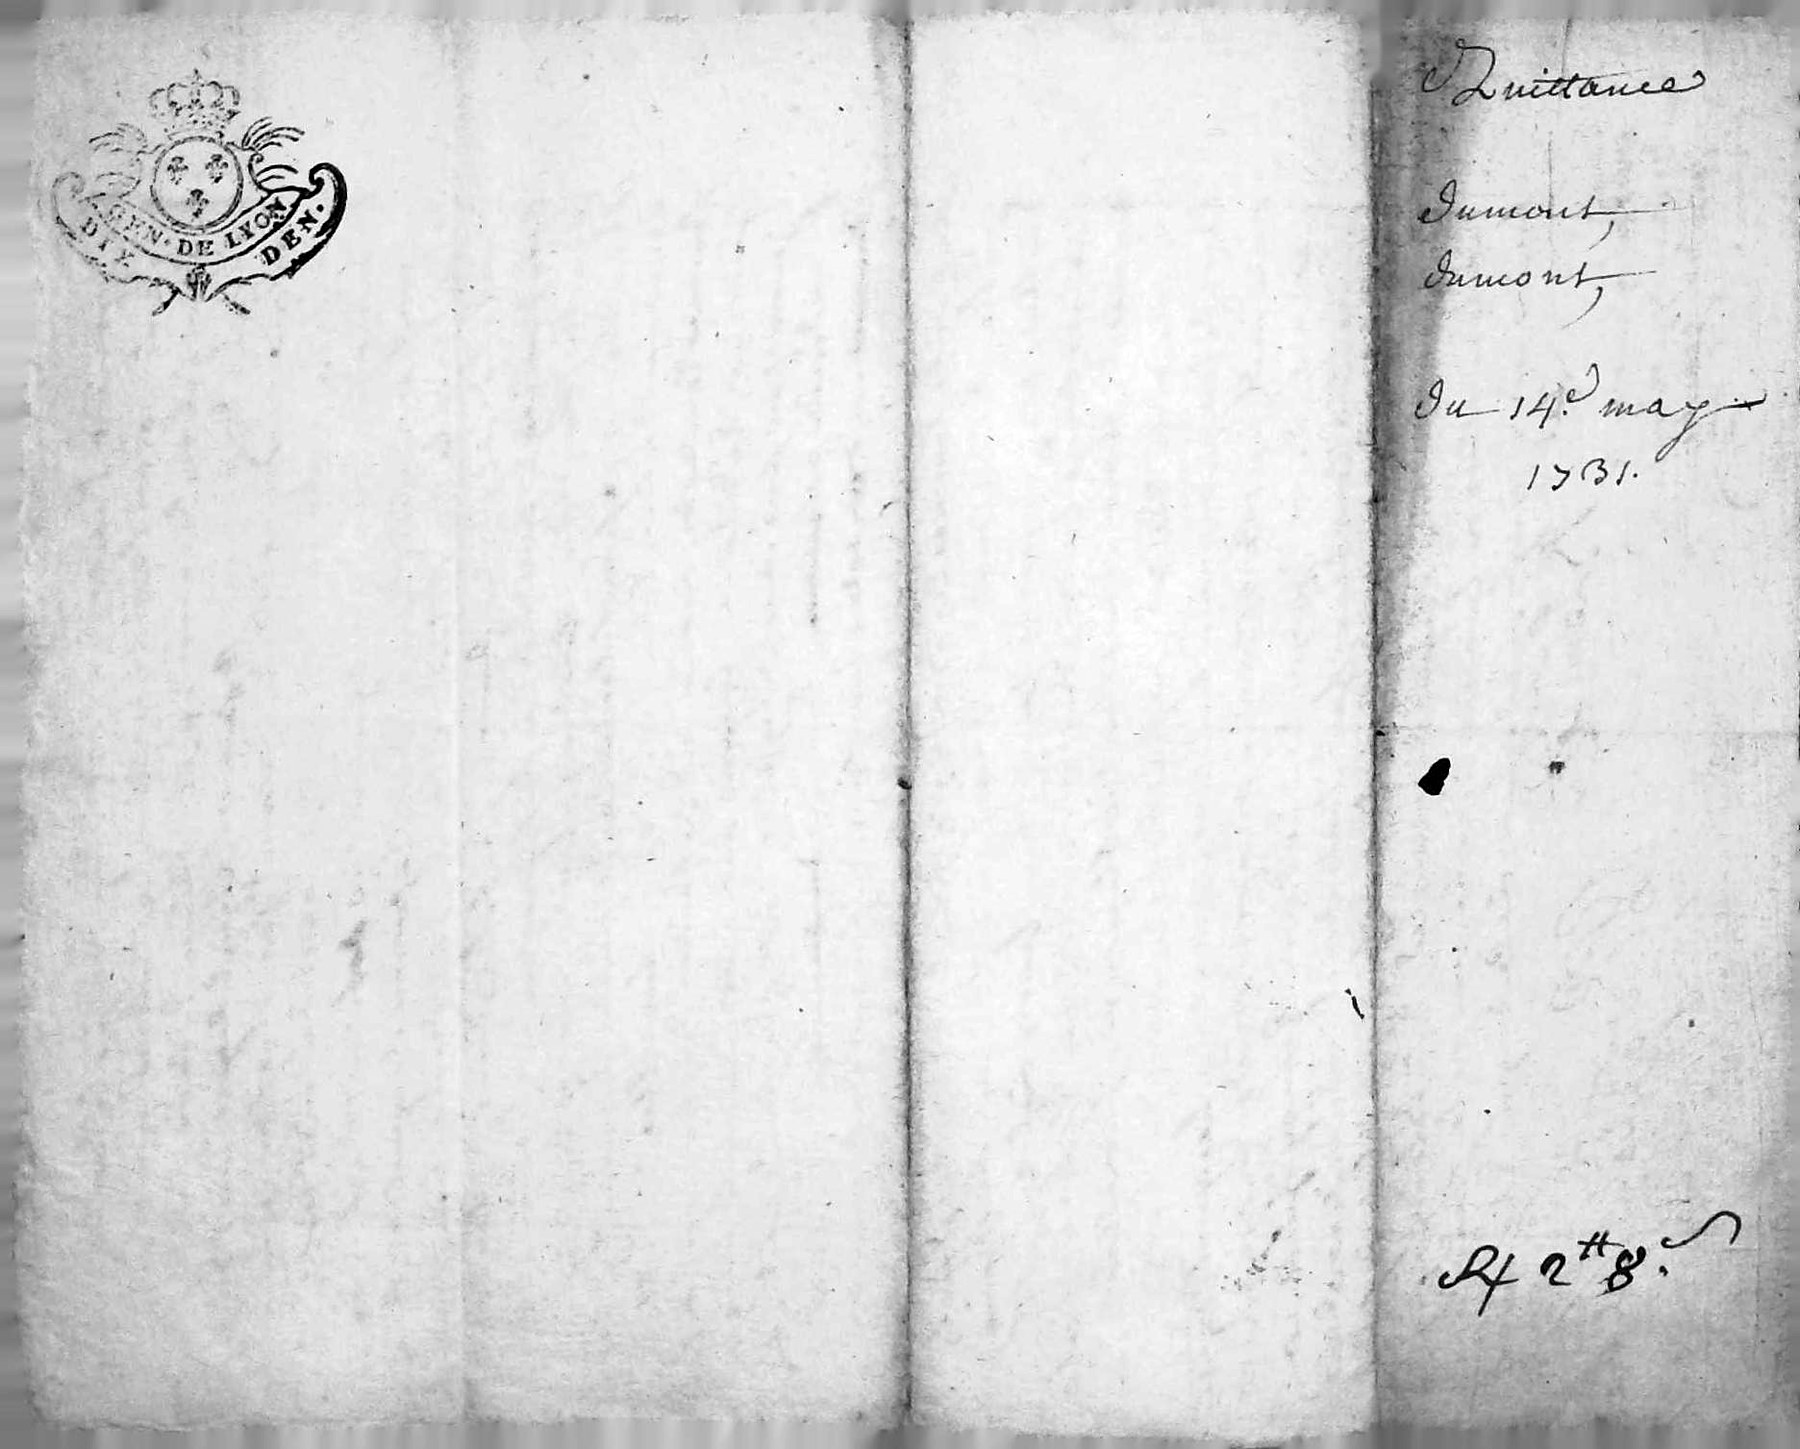 GEN. DE LYON
DIX. DEN.
Quittance
dumont,
dumont,
du 14.e may
1731.
R 2tt 8.s